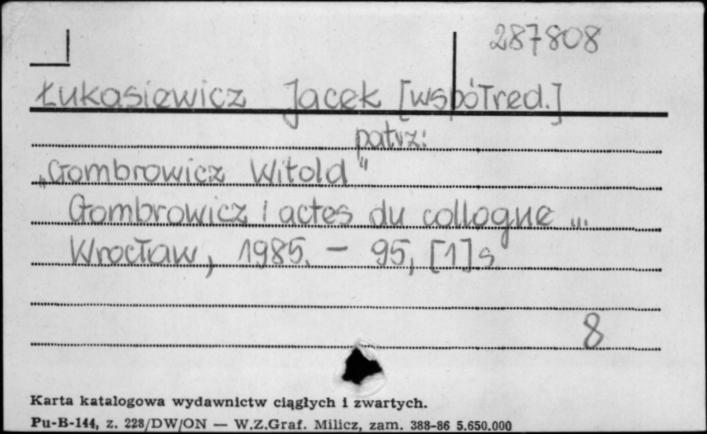 287808
Łukasiewicz Jacek [współred.]
patrz:
„Gombrowicz Witold"
Gombrowicz i actes du collogne ...
Wrocław, 1985. - 95, [1] s.
8
Karta katalogowa wydawnictw ciągłych i zwartych.
Pu-B-144, z. 228/DW/ON — W.Z.Graf. Milicz, zam. 388-86 5.650.000